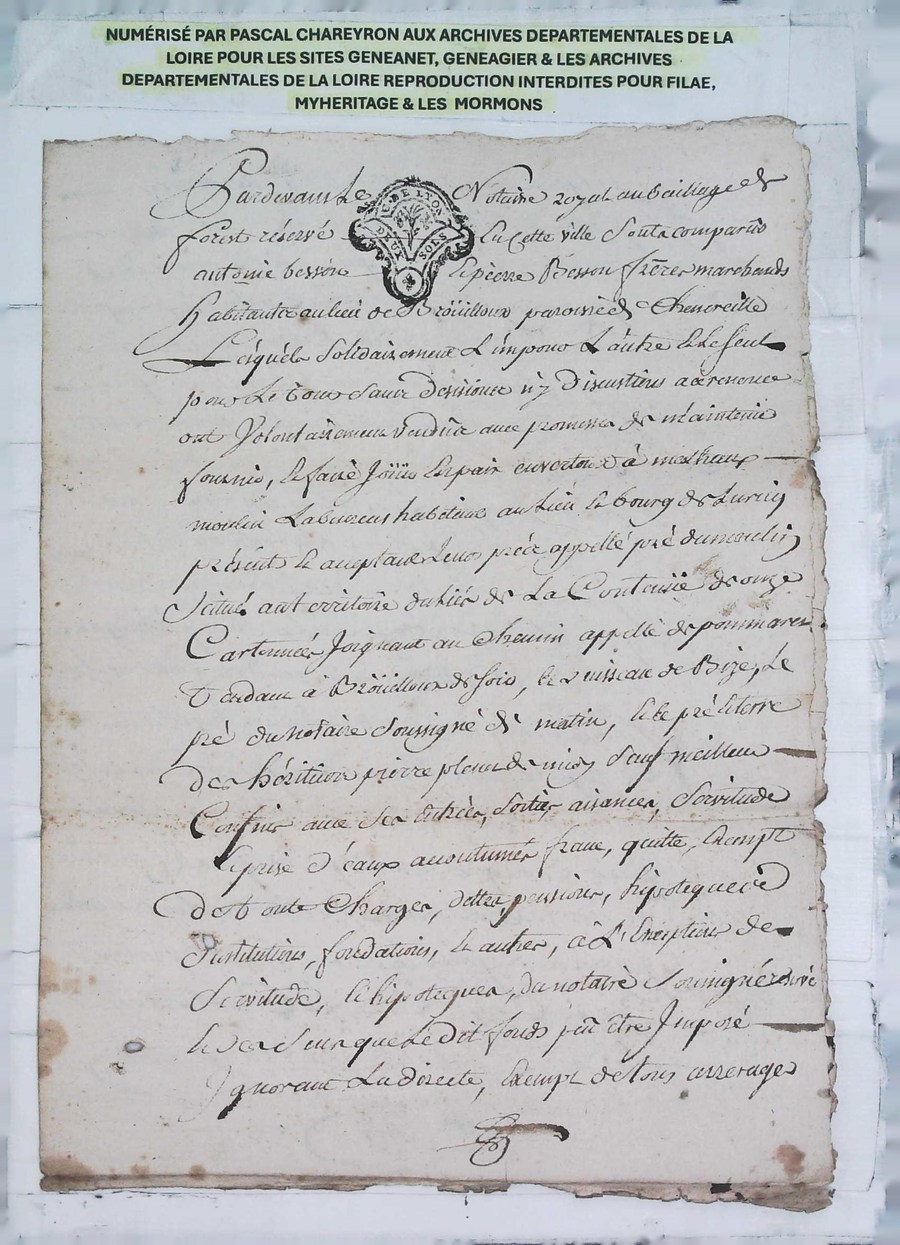 NUMÉRISÉ PAR PASCAL CHAREYRON AUX ARCHIVES DEPARTEMENTALES DE LA
LOIRE POUR LES SITES GENEANET, GENEAGIER & LES ARCHIVES
DEPARTEMENTALES DE LA LOIRE REPRODUCTION INTERDITES POUR FILAE,
MYHERITAGE & LES MORMONS
Pardevant Le Notaire royal au bailliage de
G. DE LYON
DEUX SOLS
forest réservé en cette ville sont comparus
antoine besson et pierre Besson frères marchands
habitants au lieu de Bröuilloux paroisse de Chenereille
Lesquels solidairement L'un pour L'autre et Le seul
pour Le tout sans division ny discution a renoncé
ont Volontairement Vendu avec promesse de maintenir
fournir, et faire Jöuir en paix envers tous à mathieux
moulin Laboureur habitant au Lieu et bourg de Luriecq
présent et acceptant un pré appellé pré du moulin
Scitué au territoire du lieu de La de onze
Cartonnées Joignant au Chemin appellé de pommarey
tendant à Bröuilloux de soir, le ruisseau de Bize, Le
pré du notaire soussigné de matin, et le pré et terre
des héritiers pierre de midy sauf meilleur
Confins avec ses entrées, sorties, aisances, servitude
et prise d'eaux accoutumés franc, quitte, exempt
de toute charges, dettes, pensions, hipoteques
Institutions, fondations, et autres, à L'Exception des
Servitude, et hipoteques, du notaire soussigné réservé
et que Le dit fonds pût être Imposé
Ignorant La directe, exempt de tous arrerages